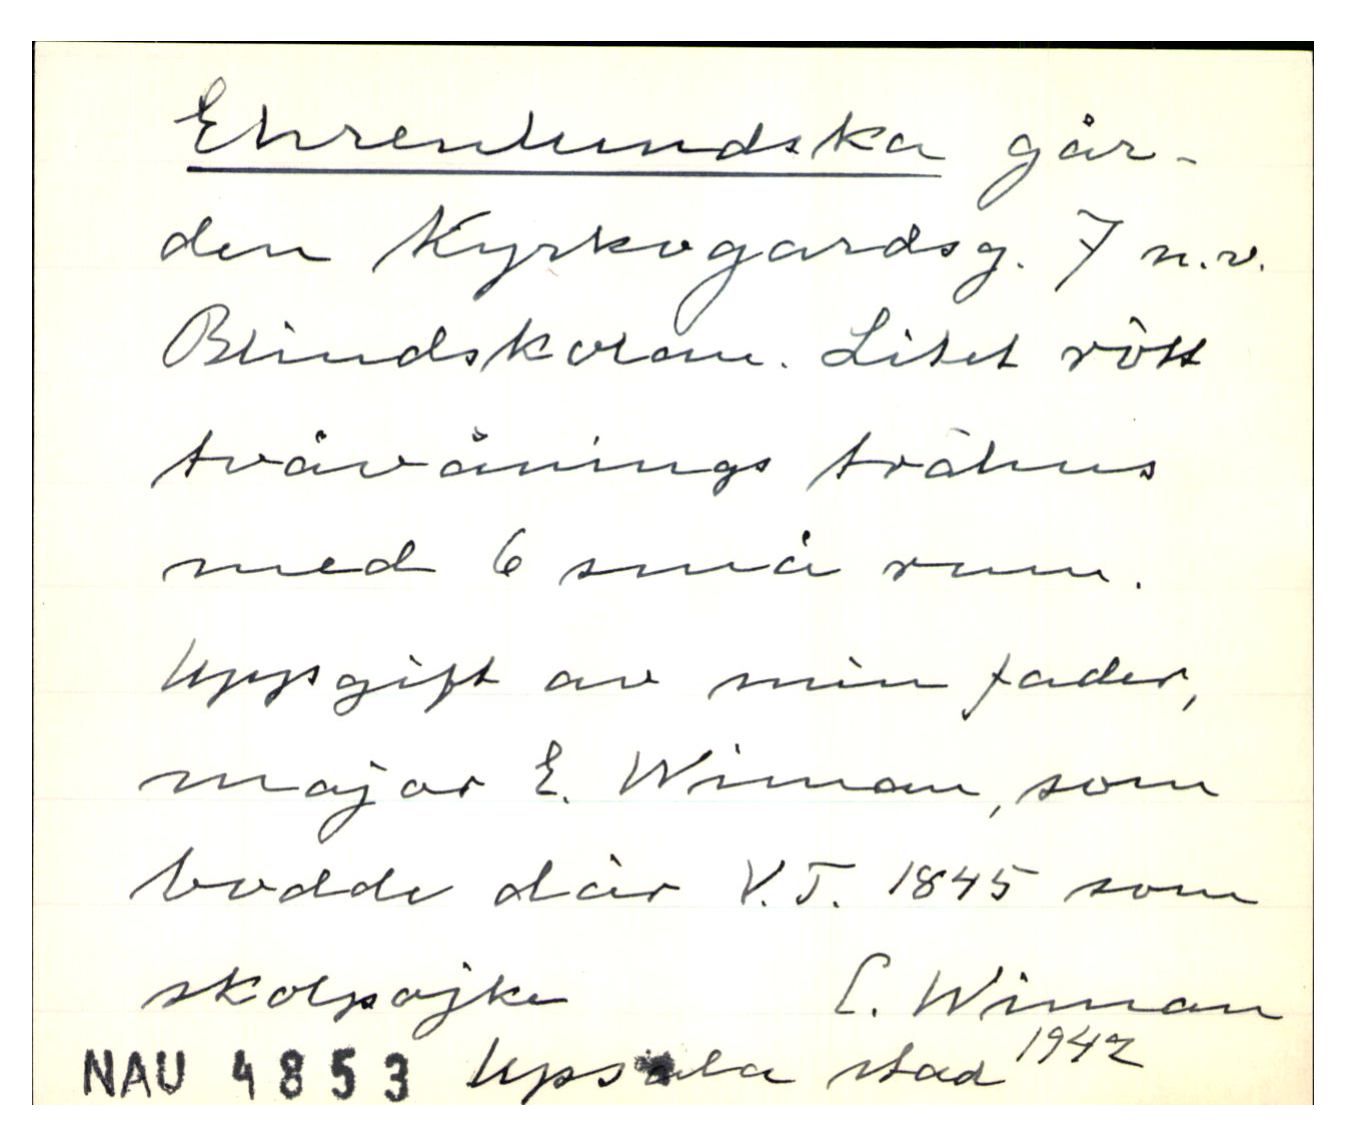 Ehrenlundska går-
den Kyrkogardsg. 7 n.v.
Blindskolan. Litet rött
tvåvånings trähus
med 6 små rum.
Uppgift av min fader,
major E. Wiman, som
bodde där V.T. 1845 som
skolpojke C. Wiman
NAU 4853 Upsala stad 1942